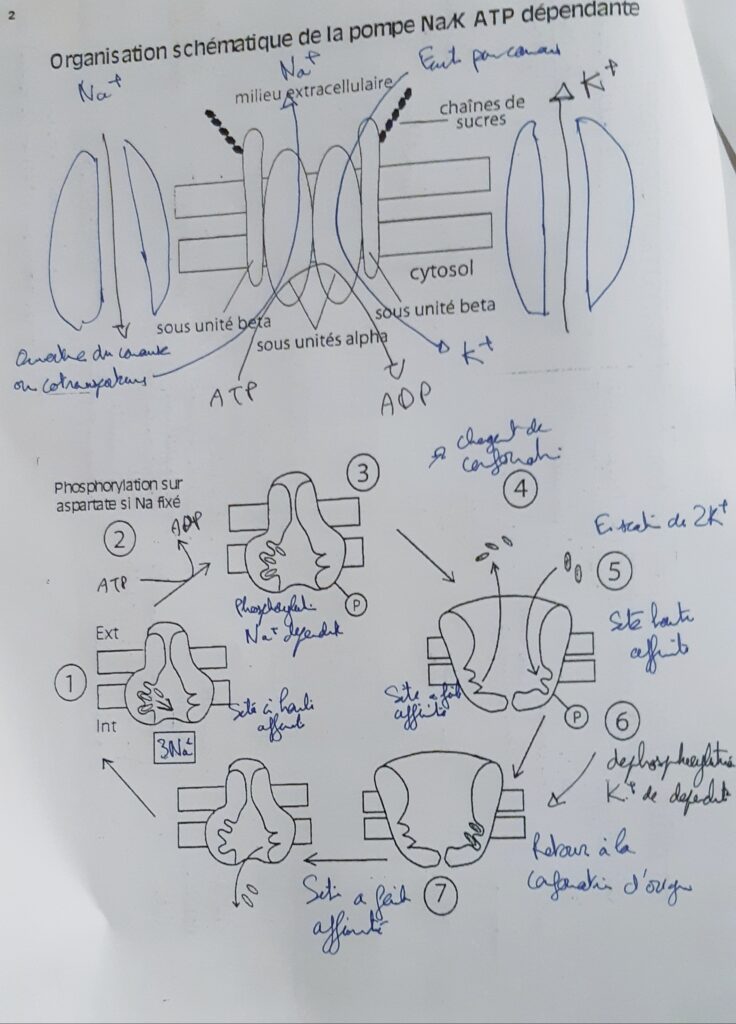 2
Organisation schématique de la pompe Na/K ATP dépendante
Na+
Na+
milieu extracellulaire
K+
chaînes de
sucres
cytosol
sous unité beta
sous unités alpha
sous unité beta
ou cotransporteurs
K+
ATP
ADP
de
4
3
Phosphorylation sur
aspartate si Na fixé
2
ADP
ATP
de 2K+
5
Na+ dépendt
P
Ext
1
Int
3Na+
Site à haute
affinité
Site haute
affinité
Site à faible
affinité
P
6
dephosphorylation
K+ dependte
Retour à la
conformation d'origine
7
Site a faible
affinité